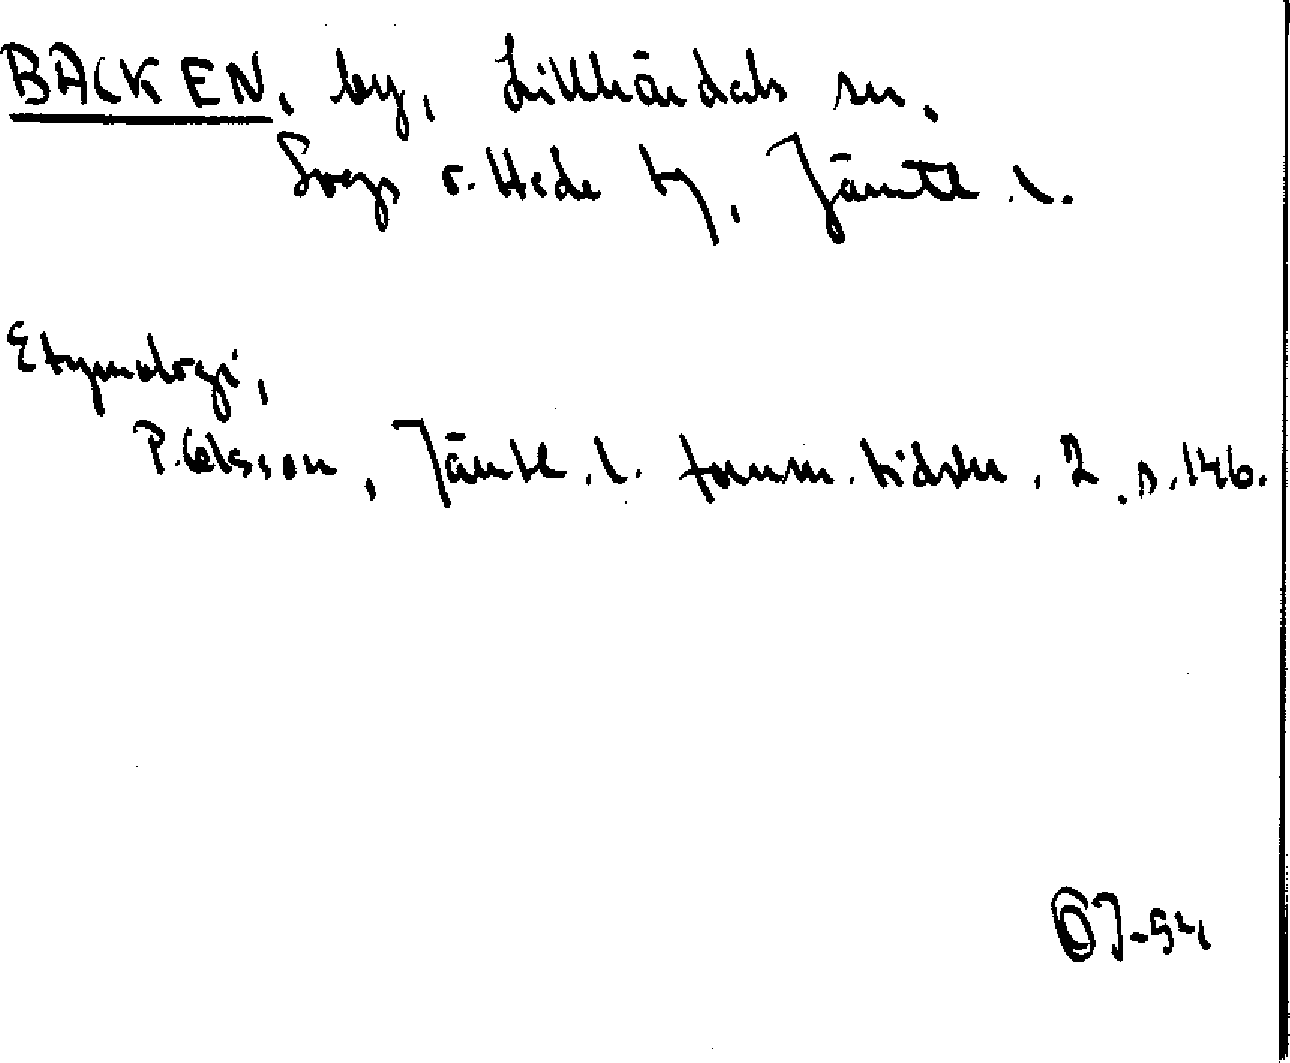 BACKEN, by, Lillhärdals sn.
Svegs o. Hede ty, Jämtl. l.
Etymologi,
P. Olsson, Jämtl. l. fornm. tidskr. 2. s. 146.
OJ-54